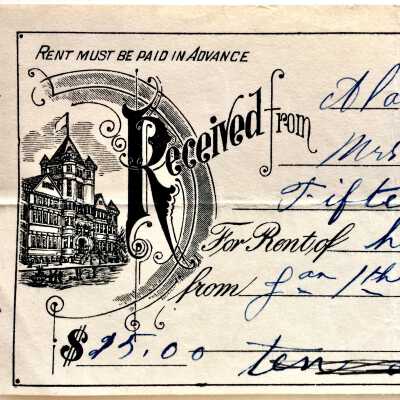 RENT MUST BE PAID IN ADVANCE
Received from
Mrs
Fifte
For Rent of h
from Jan 1th
$25.00 ten